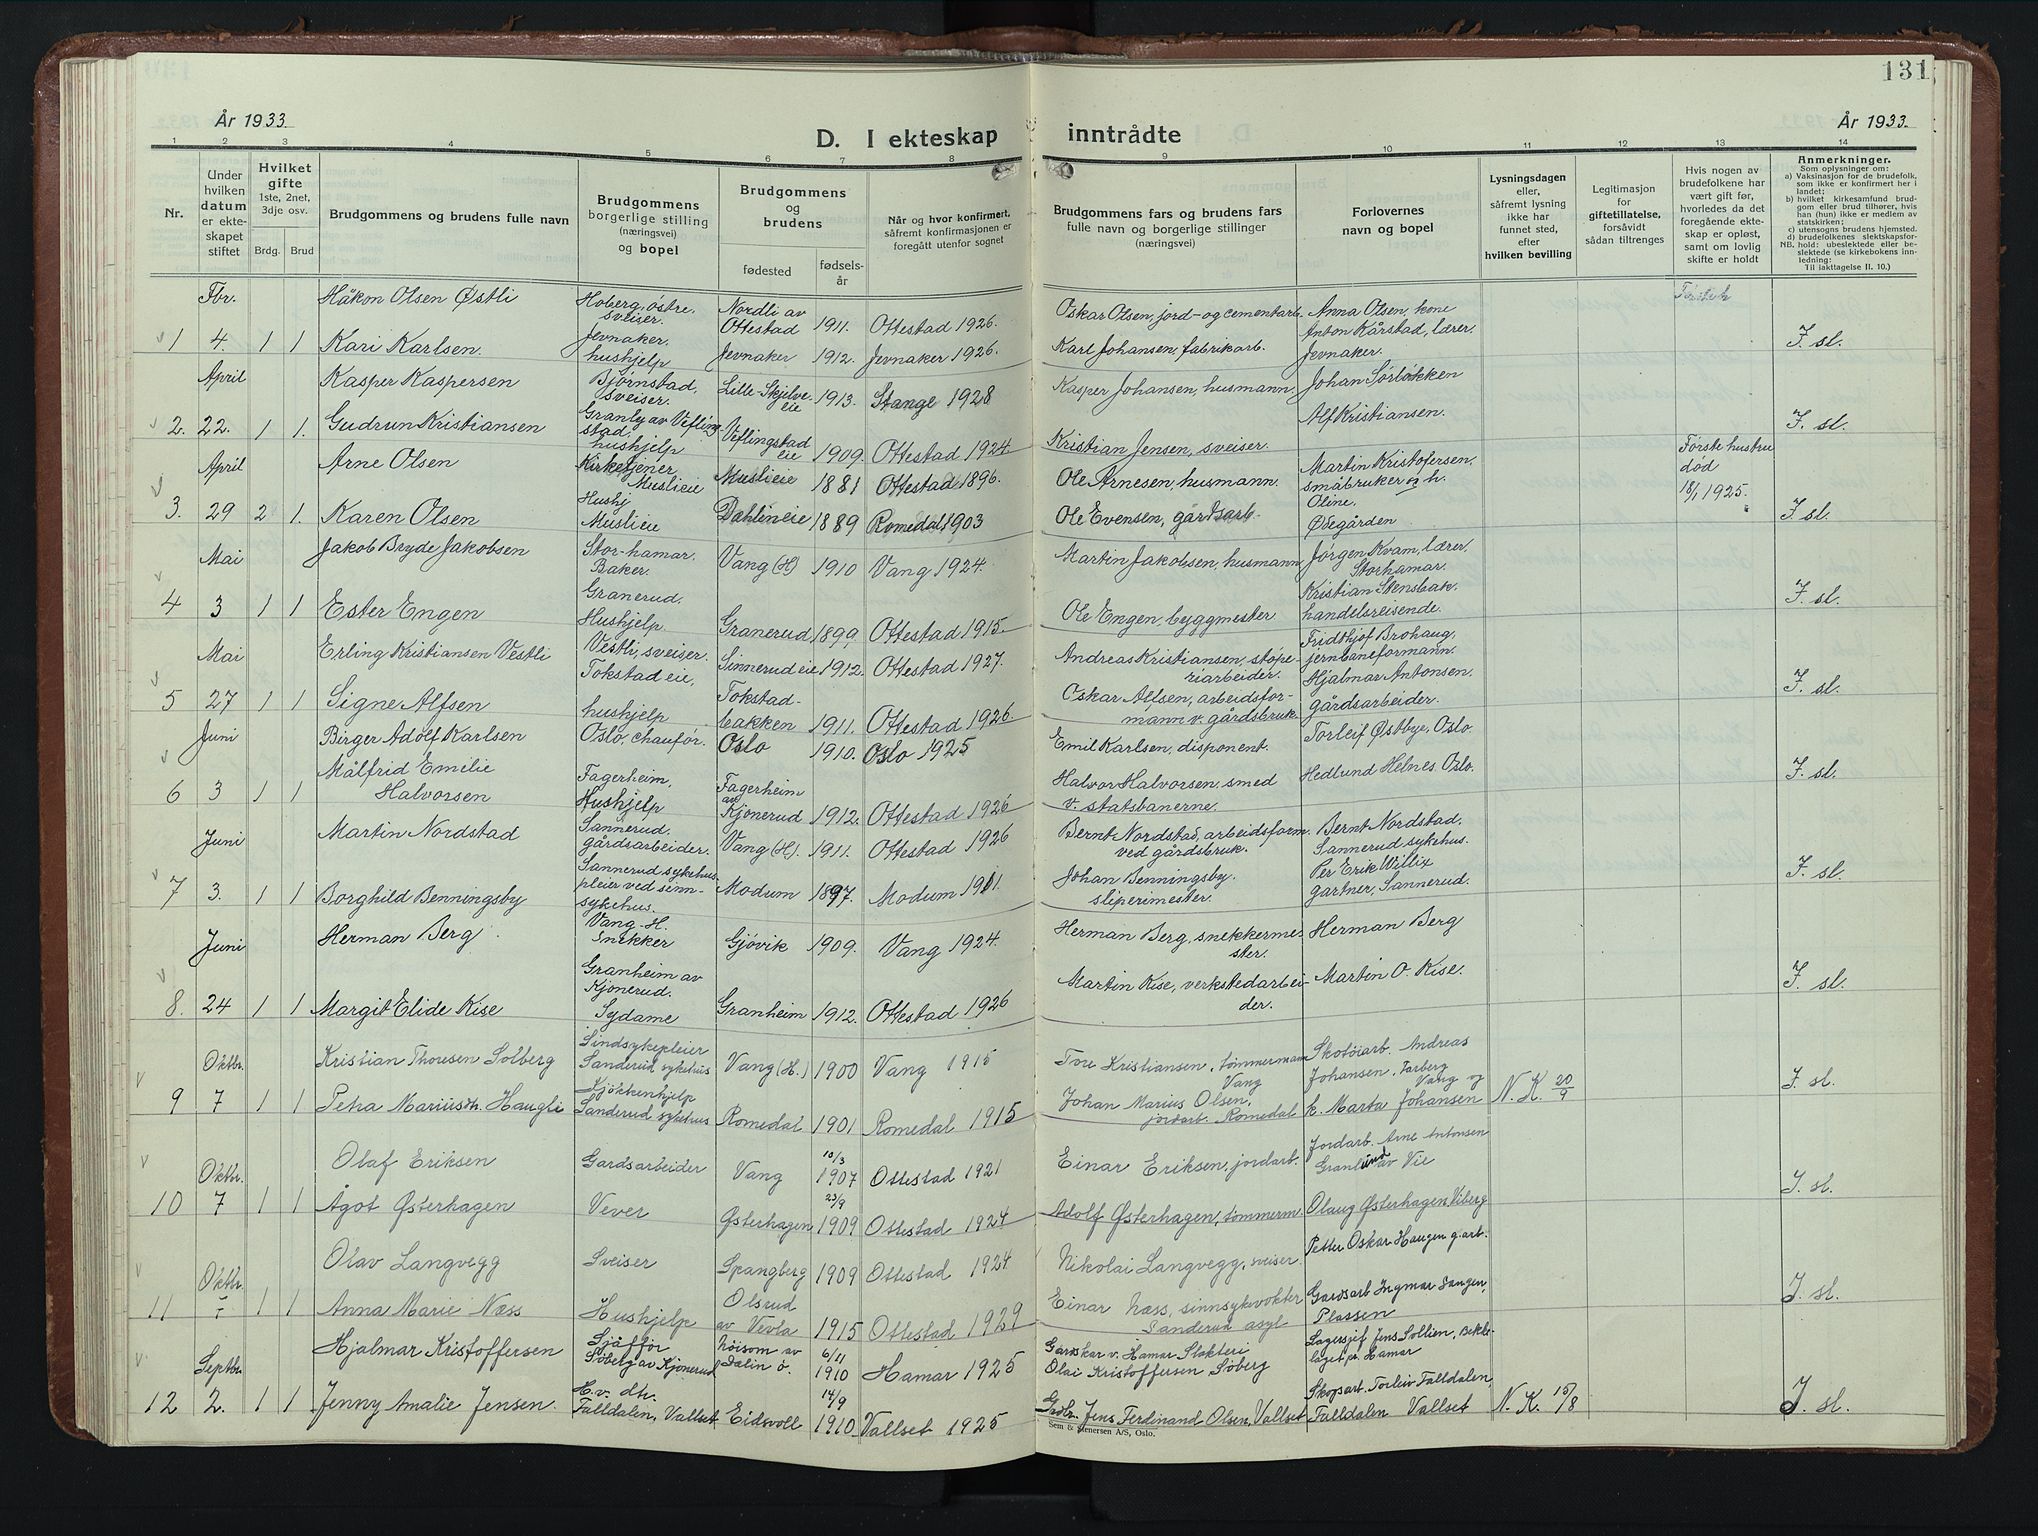 131
År 1933.
D. I ekteskap inntrådte
År 1933.
1 2 3 4 5 6 7 8 9 10 11 12 13 14
Nr.
Under hvilken datum er ekteskapet stiftet
Hvilket gifte 1ste, 2net, 3dje osv.
Brdg. Brud
Brudgommens og brudens fulle navn
Brudgommens borgerlige stilling (næringsvei) og bopel
Brudgommens og brudens
fødested
fødselsår
Når og hvor konfirmert, såfremt konfirmasjonen er foregått utenfor sognet
Brudgommens fars og brudens fars fulle navn og borgerlige stillinger (næringsvei)
Forlovernes navn og bopel
Lysningsdagen eller, såfremt lysning ikke har funnet sted, efter hvilken bevilling
Legitimasjon for giftetillatelse, forsåvidt sådan tiltrenges
Hvis nogen av brudefolkene har vært gift før, hvorledes da det foregående ekteskap er opløst, samt om lovlig skifte er holdt
Anmerkninger.
Som oplysninger om:
a) Vaksinasjon for de brudefolk, som ikke er konfirmert her i landet;
b) hvilket kirkesamfund brudgom eller brud tilhører, hvis han (hun) ikke er medlem av statskirken;
c) utensogns brudens hjemsted.
d) brudefolkenes slektskapsforhold: ubeslektede eller beslektede (se kirkebokens innledning:
NB. Til iakttagelse II. 10.)
Fbr. Håkon Olsen Østli Hoberg, østre, sveiser. Nordli av Ottestad 1911. Ottestad 1926. Oskar Olsen, jord- og cementarb. Anna Olsen, kone
1 4. 1 1 Kari Karlsen. Jevnaker. hushjelp Jevnaker 1912. Jevnaker 1926. Karl Johansen, fabrikarb. Anton Kårstad, lærer, Jevnaker. F. sl.
April Kasper Kaspersen Bjørnstad, sveiser. Lille-Skjelve-eie 1913. Stange 1928 Kasper Johansen, husmann Johan Sørløkken
2. 22. 1 1. Gudrun Kristiansen Granly av Veflingstad, hushjelp Veflingstadeie 1909. Ottestad 1924. Kristian Jensen, sveiser. Alf Kristiansen. F. sl.
April Arne Olsen Kirketjener, Muslieie Muslieie 1881 Ottestad 1896. Ole Arnesen, husmann. Martin Kristofersen, småbruker og h. Første hustru død 18/1 1925.
3. 29 2 1. Karen Olsen Hushj Muslieie Dæhlineie 1889 Romedal 1903 Ole Evensen, gårdsarb. Oline, Ødegården F. sl.
Mai Jakob Bryde Jakobsen Stor-hamar. Baker. Vang (H) 1910 Vang 1924. Martin Jakobsen, husmann Jørgen Kvam, lærer, Storhamar.
4 3 1 1 Ester Engen Granerud. Hushjelp Granerud 1899. Ottestad 1915. Ole Engen, byggmester Kristian Stensbak, handelsreisende. F. sl.
Mai Erling Kristiansen Vestli Vestli, sveiser. Sinnerud eie 1912. Ottestad 1927. Andreas Kristiansen, støperiarbeider. Fridthjof Brohaug, jernbaneformann.
5 27 1 1 Signe Alfsen Tokstad eie, hushjelp Tokstadbakken 1911. Ottestad 1926. Oskar Alfsen, arbeidsformann v. gårdsbruk. Hjalmar Antonsen, gårdsarbeider. F. sl.
Juni Birger Adolf Karlsen Oslo, chaufør. Oslo 1910. Oslo 1925 Emil Karlsen, disponent. Torleif Østbye, Oslo
6 3 1 1 Målfrid Emilie Halvorsen Fagerheim, Hushjelp Fagerheim av Kjonerud 1912. Ottestad 1926 Halvor Halvorsen, smed v. statsbanerne. Hedlund Helnes. Oslo. F. sl.
Juni Martin Nordstad Sannerud, gårdsarbeider. Vang (H). 1911. Ottestad 1926 Bernt Nordstad, arbeidsform. ved gårdsbruk. Bernt Nordstad, Sannerud sykehus.
7 3. 1 1 Borghild Benningsby Sannerud sykehus, pleier ved sinnsykehus. Modum 1897. Modum 1911. Johan Benningsby. sliperimester. Per Erik Willix gartner, Sannerud. F. sl.
Juni Herman Berg Vang-H. Snekker Gjøvik 1909. Vang 1924. Herman Berg, snekkermester. Herman Berg
8. 24 1 1 Margit Elide Kise Granheim av Kjonerud. Sydame Granheim 1912. Ottestad 1926 Martin Kise, verkstedarbeider. Martin O. Kise. F. sl.
Oktbr. Kristian Thoresen Solberg Sindsykepleier Sanderud sykehus Vang (H.) 1900 Vang 1915 Tore Kristiansen, tømmermann Vang Skotøiarb. Andreas Johansen, Farberg Vang og
9 7 1 1 Petra Mariusdtr. Haugli Kjøkkenhjelp Sanderud sykehus Romedal 1901 Romedal 1915 Johan Marius Olsen, jordarb. Romedal k. Marta Johansen N. K. 20/9 F. sl.
Oktbr. Olaf Eriksen Gardsarbeider Vang 10/3 1907 Ottestad 1921 Einar Eriksen, jordarb. Jordarb. Arne Antonsen Granlund av Vie
10 7 1 1 Ågot Østerhagen Vever Østerhagen 23/9 1909 Ottestad 1924 Adolf Østerhagen, tømmerm. Olaug Østerhagen, Viberg F. sl.
Oktbr. Olav Langvegg Sveiser Spangberg 1909 Ottestad 1924 Nikolai Langvegg, sveiser. Petter Oskar Haugen g.arb.
11 7 1 1 Anna Marie Næss Hushjelp Olsrud av Vevla 1915 Ottestad 1929 Einar Næss, sinnsykevokter Sanderud asyl Gardsarb Ingmar Haugen, Plassen F. sl.
Septbr. Hjalmar Kristoffersen Sjåffør Søberg av Kjonerud Høisom av Dalin ø. 6/11 1910 Hamar 1925 Gardskar v. Hamar Slakteri Olai Kristoffersen Søberg Lagersjef Jens Sollien, Bekkelaget pr. Hamar
12 2. 1 1 Jenny Amalie Jensen. H.v. dtr. Falldalen, Vallset Eidsvoll 14/9 1910 Vallset 1925 Grdbr. Jens Ferdinand Olsen, Vallset Skogsarb. Torleiv Falldalen, Falldalen Vallset N. K. 15/8 F. sl.
Sem & Stenersen A/S, Oslo.